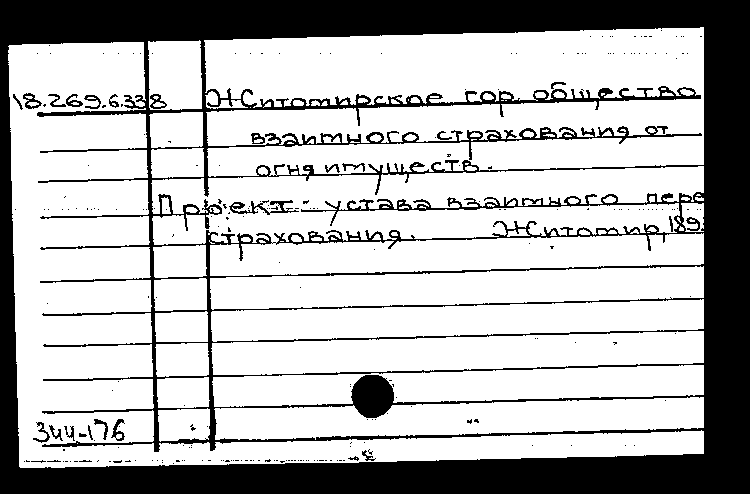 18.269.6.338 Житомирское гор. общество
взаимного страхования от
огня имуществ.
Проект устава взаимного пере
страхования. Житомир, 189
344-176